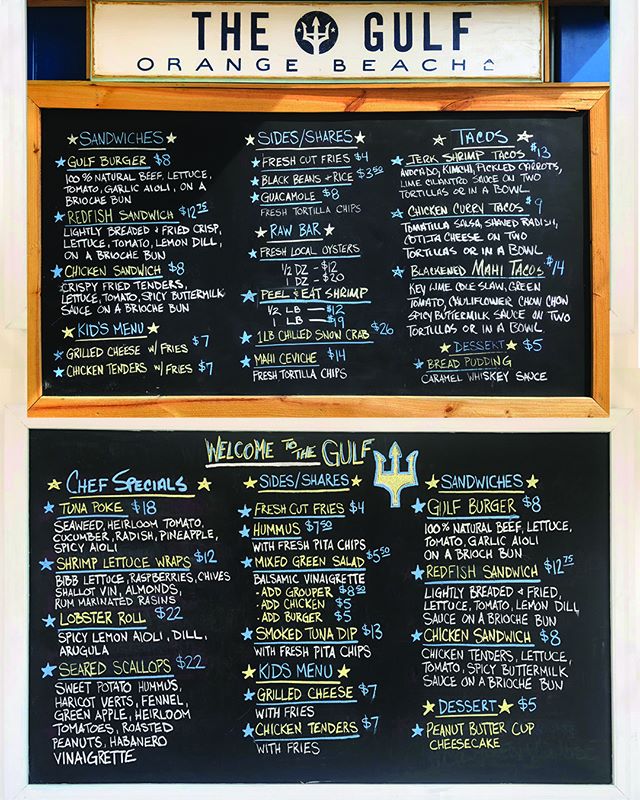 THE GULF
ORANGE BEACH
SANDWICHES
GULF BURGER $8
100% NATURAL BEEF, LETTUCE,
TOMATO, GARLIC AIOLI, ON A
BRIOCHE BUN
REDFISH SANDWICH $12.75
LIGHTLY BREADED + FRIED CRISP,
LETTUCE, TOMATO, LEMON DILL,
ON A BRIOCHE BUN
CHICKEN SANDWICH $8
CRISPY FRIED TENDERS,
LETTUCE, TOMATO, SPICY BUTTERMILK
SAUCE ON A BRIOCHE BUN
KID'S MENU
GRILLED CHEESE W/ FRIES $7
CHICKEN TENDERS W/ FRIES $7
SIDES/SHARES
FRESH CUT FRIES $4
BLACK BEANS + RICE $3.50
GUACAMOLE $8
FRESH TORTILLA CHIPS
RAW BAR
FRESH LOCAL OYSTERS
1/2 DZ - $12
1 DZ - $20
PEEL & EAT SHRIMP
1/2 LB - $12
1 LB - $19
1LB CHILLED SNOW CRAB $26
MAHI CEVICHE $14
FRESH TORTILLA CHIPS
TACOS
JERK SHRIMP TACOS $13
AVOCADO, KIMCHI, PICKLED CARROTS,
LIME CILANTRO SAUCE ON TWO
TORTILLAS OR IN A BOWL
CHICKEN CURRY TACOS $9
TOMATILLA SALSA, SHAVED RADISH,
COTIJA CHEESE ON TWO
TORTILLAS OR IN A BOWL
BLACKENED MAHI TACOS $14
KEY LIME COLE SLAW, GREEN
TOMATO, CAULIFLOWER CHOW CHOW
SPICY BUTTERMILK SAUCE ON TWO
TORTILLAS OR IN A BOWL
DESSERT $5
BREAD PUDDING
CARAMEL WHISKEY SAUCE
WELCOME TO THE GULF
CHEF SPECIALS
TUNA POKE $18
SEAWEED, HEIRLOOM TOMATO,
CUCUMBER, RADISH, PINEAPPLE,
SPICY AIOLI
SHRIMP LETTUCE WRAPS $12
BIBB LETTUCE, RASPBERRIES, CHIVES
SHALLOT VIN, ALMONDS,
RUM MARINATED RASINS
LOBSTER ROLL $22
SPICY LEMON AIOLI, DILL,
ARUGULA
SEARED SCALLOPS $22
SWEET POTATO HUMMUS,
HARICOT VERTS, FENNEL,
GREEN APPLE, HEIRLOOM
TOMATOES, ROASTED
PEANUTS, HABANERO
VINAIGRETTE
SIDES/SHARES
FRESH CUT FRIES $4
HUMMUS $7.50
WITH FRESH PITA CHIPS
MIXED GREEN SALAD $5.50
BALSAMIC VINAIGRETTE
- ADD GROUPER $8.50
- ADD CHICKEN $5
- ADD BURGER $5
SMOKED TUNA DIP $13
WITH FRESH PITA CHIPS
KIDS MENU
GRILLED CHEESE $7
WITH FRIES
CHICKEN TENDERS $7
WITH FRIES
SANDWICHES
GULF BURGER $8
100% NATURAL BEEF, LETTUCE,
TOMATO, GARLIC AIOLI
ON A BRIOCH BUN
REDFISH SANDWICH $12.75
LIGHTLY BREADED + FRIED,
LETTUCE, TOMATO, LEMON DILL
SAUCE ON A BRIOCHE BUN
CHICKEN SANDWICH $8
CHICKEN TENDERS, LETTUCE,
TOMATO, SPICY BUTTERMILK
SAUCE ON A BRIOCHE BUN
DESSERT $5
PEANUT BUTTER CUP
CHEESECAKE